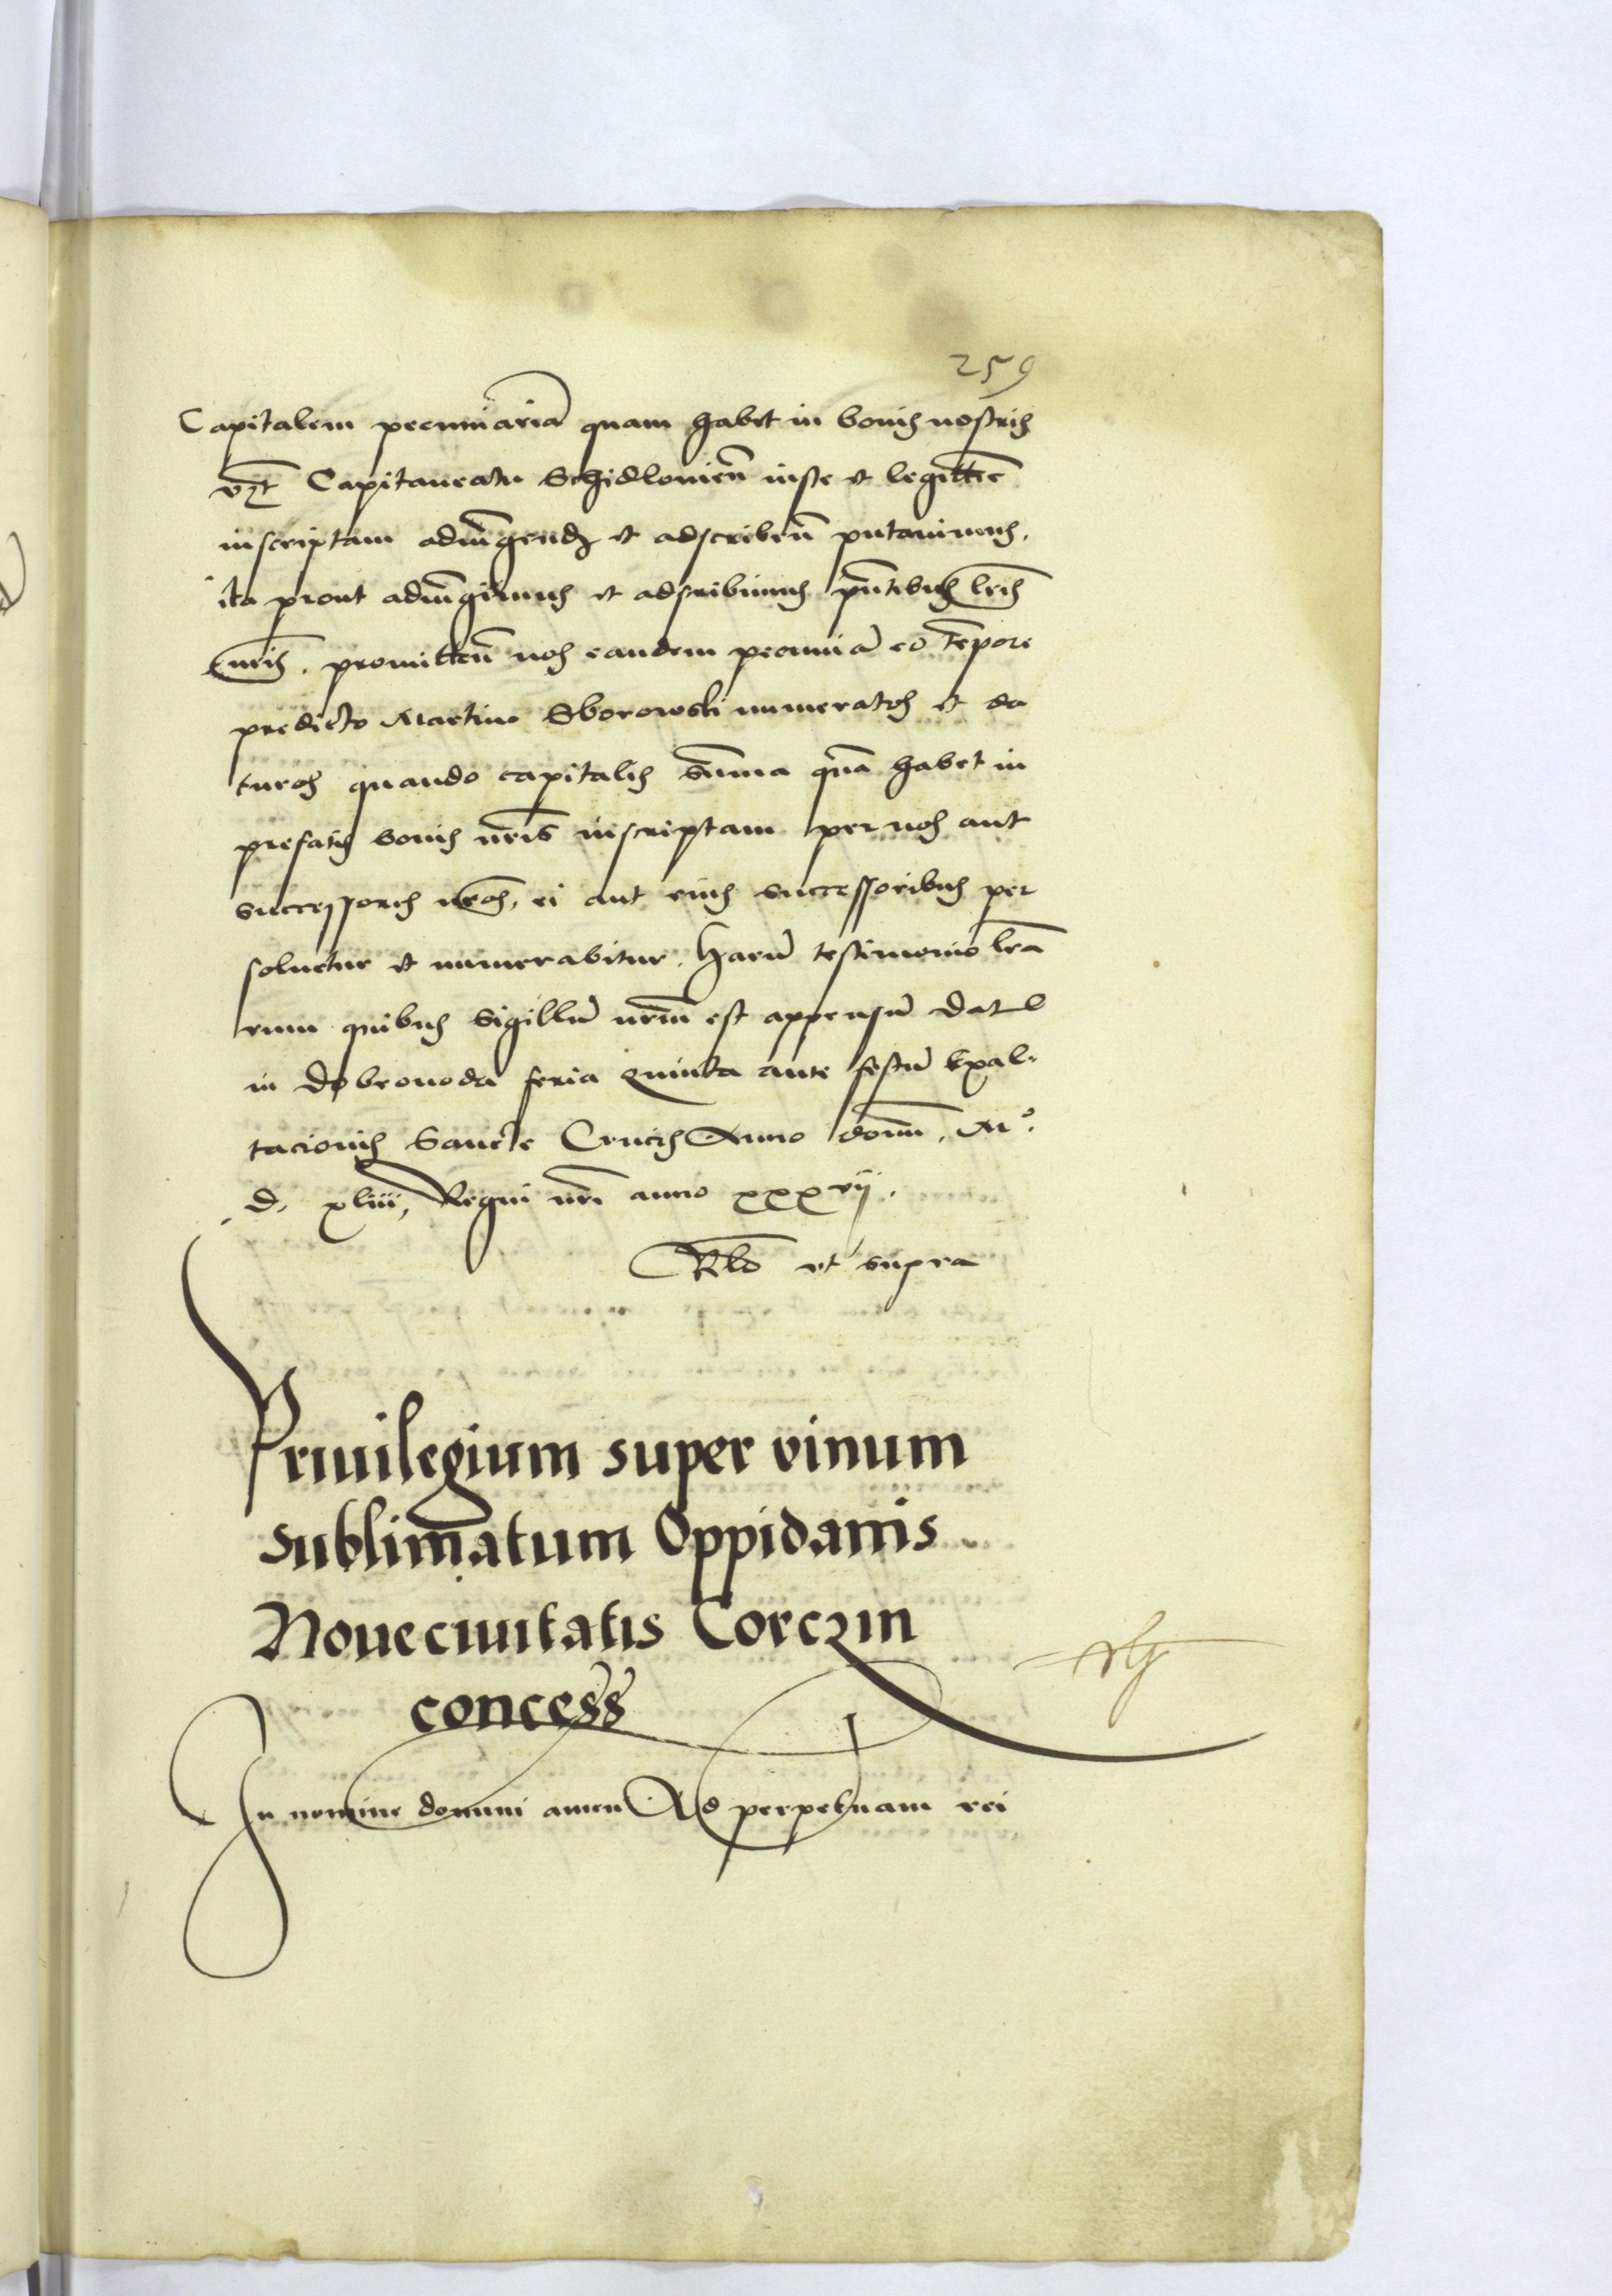 259
Capitalem pecuniariā quam habet in bonis nostris
vzt Capitaneatu Schidlovieñ iuste et legittīe
inscriptam adiūgendẜ et adscribeñ putavimus,
ita prout adiūgimus et adscribimus pñtibus lrīs
nrīs. promitteñ nos eandem pecuniā eo tēpore
predicto Martino Sborowski numeratos et da
turos quando capitalis sūma quā habet in
prefatis bonis nrīs inscriptam per nos aut
successores nros, ei aut eius successoribus per
soluetur et numerabitur. Harū testimonio lrā
rum quibus Sigillū nrm̄ est appensū Dat
in Dobrovoda feria quinta ante festū Exal-
tacionis Sancte Crucis Anno doñi, Mº.
d. xliii, Regni nrī anno xxxvij.
Rlō ut supra
Privilegium super vinum
sublimatum Oppidanis
Noueciuitatis Corczin
concess
In nomine domini amen Ad perpetuam rei